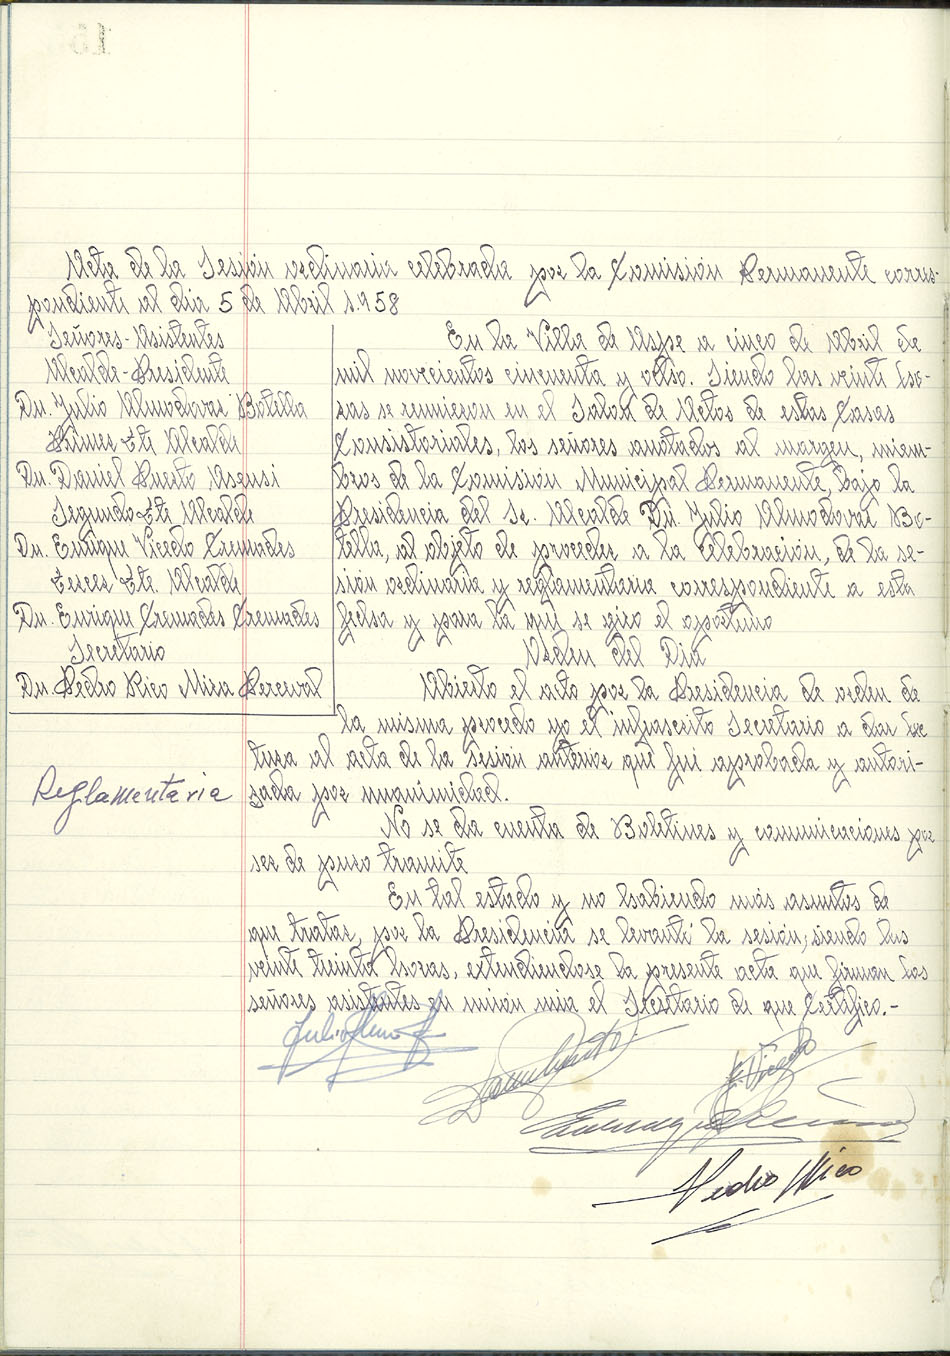 Acta de la Sesión ordinaria celebrada por la Comisión Permanente corres-
pondiente al dia 5 de Abril 1.958
Señores-Asistentes
Alcalde-Presidente
Dn. Julio Almodovar Botella
Primer Tte Alcalde
Dn. Daniel Puerto Asensi
Segundo Tte Alcalde
Dn. Enrique Vicedo Cremades
Tercer Tte. Alcalde
Dn. Enrique Cremades Cremades
Secretario
Dn. Pedro Rico Mira Perceval
En la Villa de Aspe a cinco de Abril de
mil novecientos cincuenta y otso. Siendo las veinte ho-
ras se reunieron en el Salon de Actos de estas Casas
Consistoriales, los señores anotados al margen, miem-
bros de la Comisión Municipal Permanente, bajo la
Presidencia del Sr. Alcalde Dn. Julio Almodovar Bo-
tella, al objeto de proceder a la celebración, de la se-
sión ordinaria y reglamentaria correspondiente a esta
fecha y para la que se giro el oportuno
Orden del Dia
Abierto el acto por la Presidencia de orden de
la misma procedo yo el infrascrito Secretario a dar lec
tura al acta de la sesión anterior que fué aprobada y autori-
zada por unanimidad.
Reglamentaria
No se da cuenta de Boletines y comunicaciones por
ser de puro tramite
En tal estado y no habiendo más asuntos de
que tratar, por la Presidencia se levanté la sesión, siendo las
veinte treinta horas, extendiendose la presente acta que firman los
señores asistentes en unión mia el Secretario de que Certifico.-
Pedro Rico